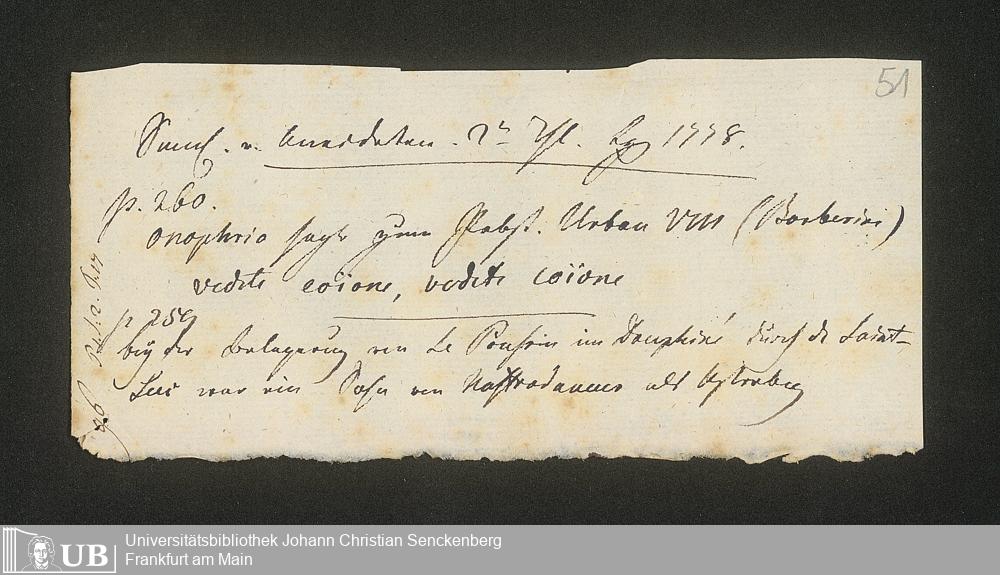 51
Samml. v. Anecdoten. 2r Thl. Lpz 1778.
p. 260.
Onophrio sagte zum Pabst. Urban VIII (Barberini)
vedete coïone, vedete coïone
p 259
bey der Belagerung von Le Pousin im Dauphiné durch de Saint-
Luc war ein Sohn von Nostradamus als Astrolog
UB
Universitätsbibliothek Johann Christian Senckenberg
Frankfurt am Main